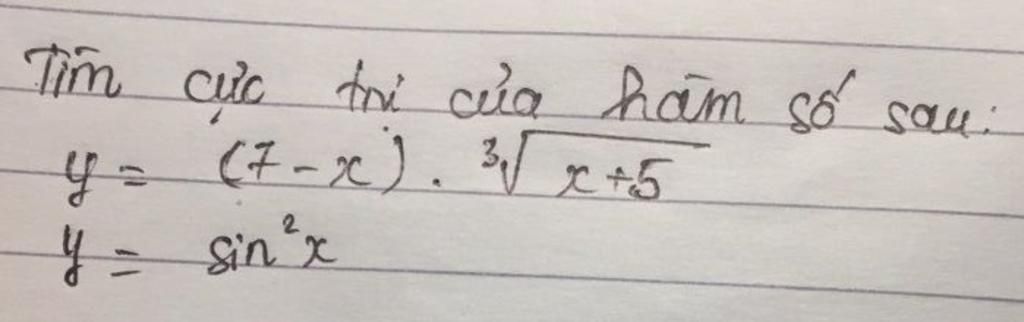 Tìm cực trị của hàm số sau:
y = (7 - x) . ∛(x+5)
y = sin²x